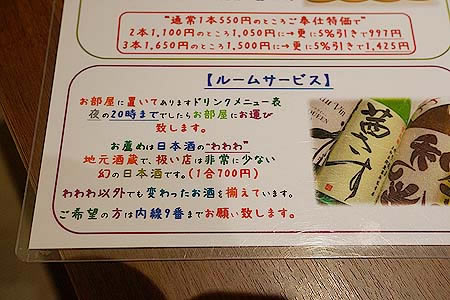 "通常1本550円のところご奉仕特価で"
2本1,100円のところ1,050円に→更に5%引きで997円
3本1,650円のところ1,500円に→更に5%引きで1,425円
【ルームサービス】
お部屋に置いてありますドリンクメニュー表
夜の20時まででしたらお部屋にお運び
致します。
お薦めは日本酒の"わわわ"
地元酒蔵で、扱い店は非常に少ない
幻の日本酒です。(1合700円)
わわわ以外でも変わったお酒を揃えています。
ご希望の方は内線9番までお願い致します。